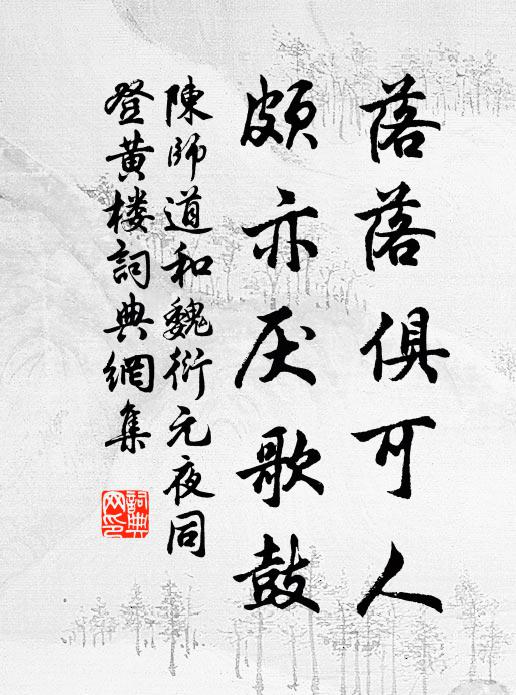 落落俱可人
頗亦厌歌鼓
陳師道和魏衍元夜同
登黄楼詞典網集
詞典
网印